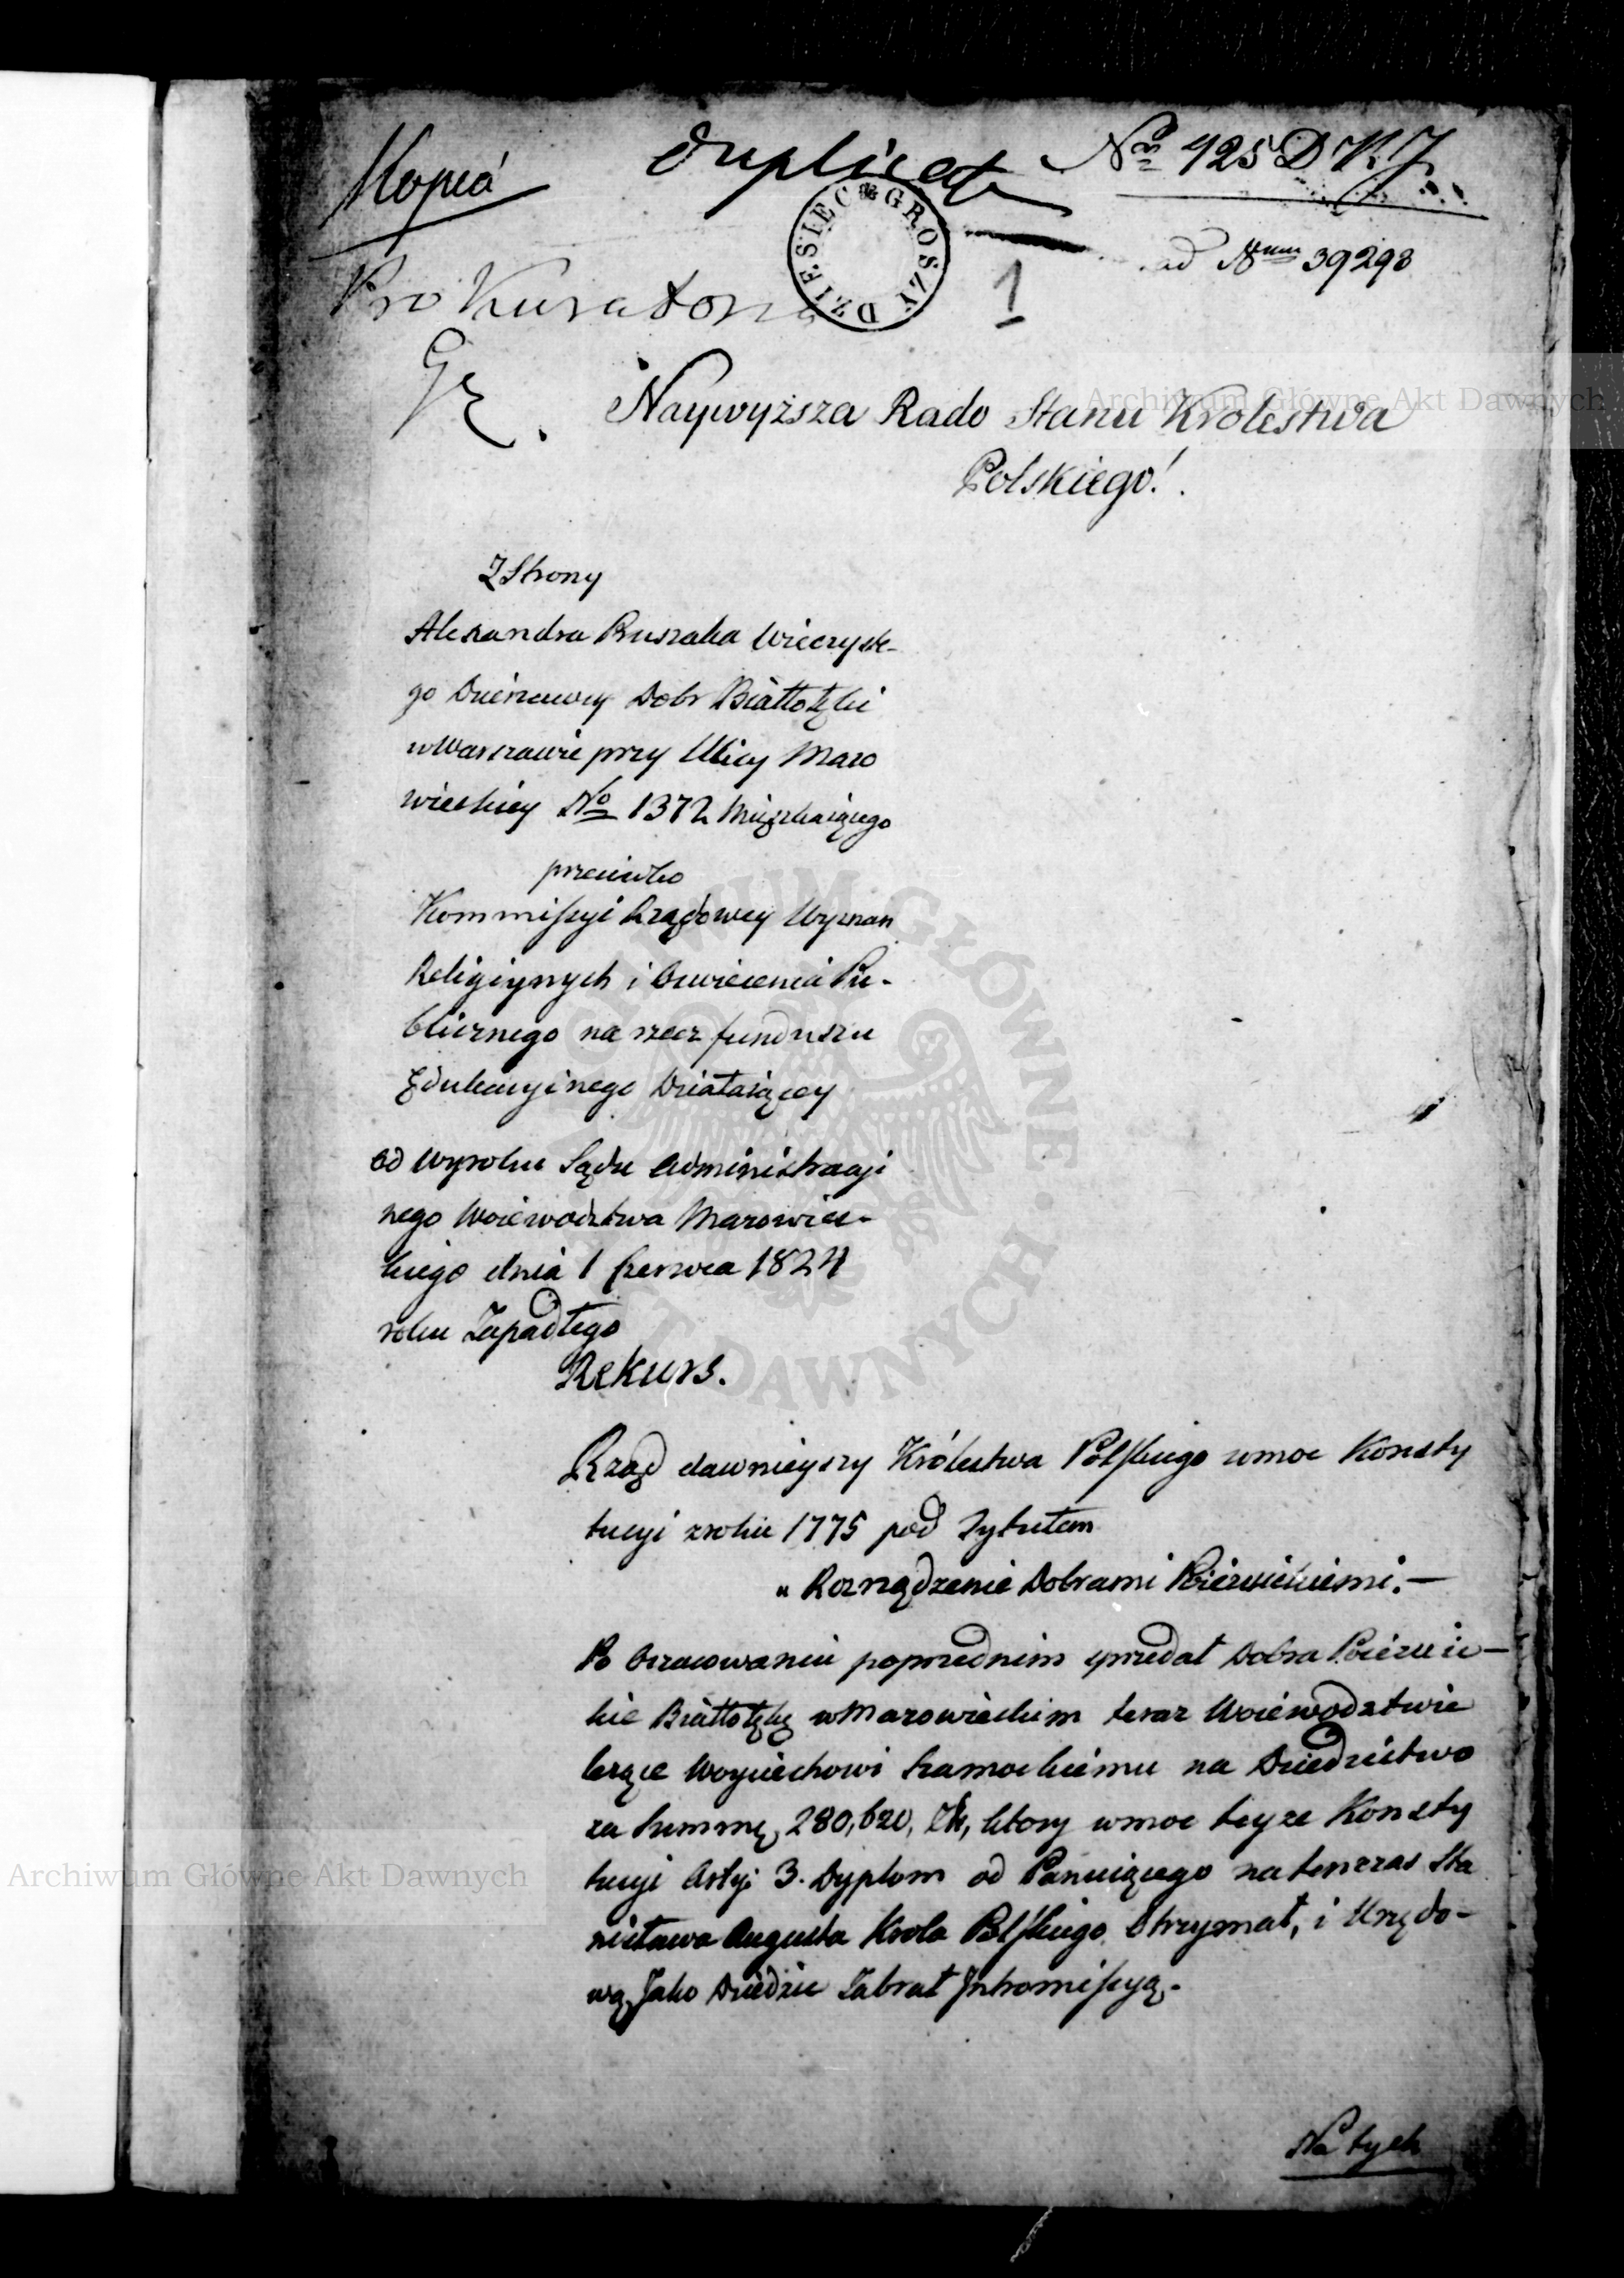 Kopia
Duplicat
Nro 925 D K J
ad Num 39298
DZIESIĘĆ GROSZY
1
Prokurator
Naywyższa Rado Stanu Krolestwa
Polskiego!
Z Strony
Alexandra Pruszaka Wieczyste-
go Dzierzawcy Dobr Białłołęki
w Warszawie przy Ulicy Mazo
wieckiey No 1372 Mięszkaiącego
przeciwko
Kommissyi Rządowey Wyznan
Religiynych i Oswiecenia Pu-
blicznego na rzecz funduszu
Edukacyinego Działaiącey
od Wyroku Sądu Administracyi
nego Woiewodztwa Mazowiec-
kiego dnia 1 Czerwca 1824
roku Zapadłego
Rekurs.
Rząd dawnieyszy Królestwa Polskiego w moc Konsty
tucyi z roku 1775 pod Tytułem
„ Rozrządzenie Dobrami Poiezuickiemi. —
Po Oszacowaniu poprzednim sprzedał Dobra Poiezuic—
kie Białłołękę w Mazowieckim teraz Woiewodztwie
leżące Woyciechowi Szamockiemu na Dziedzictwo
za Summę 280,620, Zł, ktory w moc teyze Konsty
tucyi Arty: 3. Dyplom od Panuiącego natenczas Sta
nisława Augusta Krola Polskiego Otrzymał, i Urzędo-
wą Jako Dziedzic Zabrał Intromissyą.
Na tych
Archiwum Główne Akt Dawnych
Archiwum Główne Akt Dawnych
ARCHIWUM GŁÓWNE AKT DAWNYCH